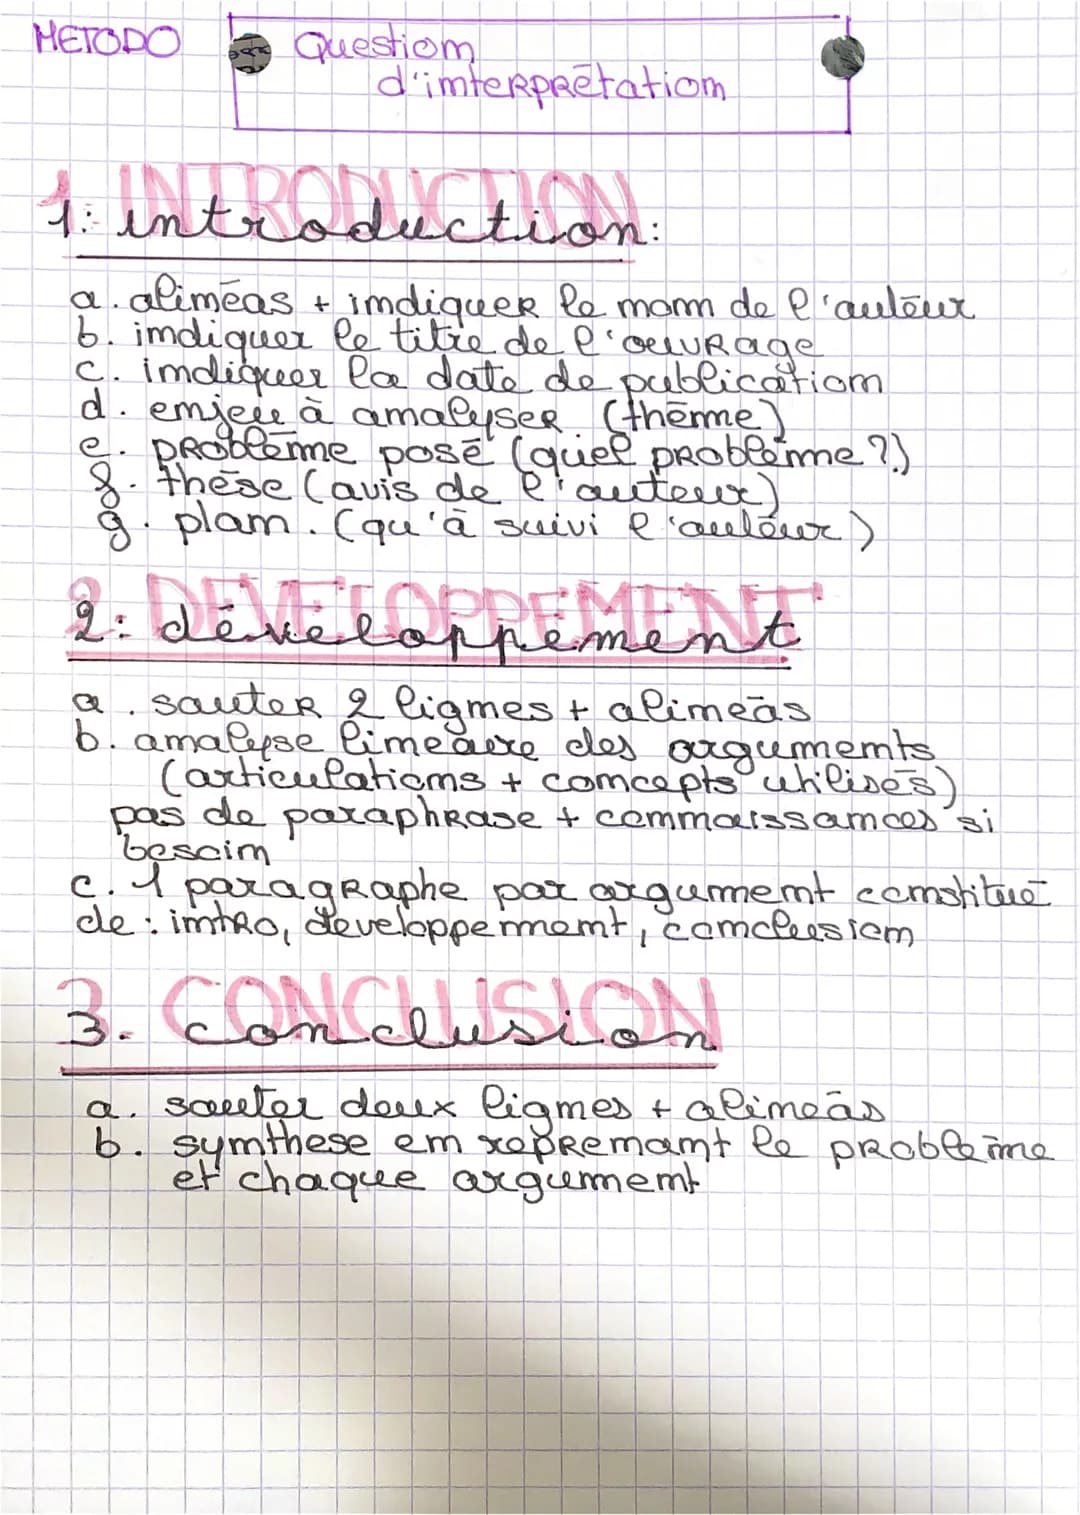 METODO
Question
d'interprétation
1: INTRODUCTION
introduction:
a. alinéas + indiquer le nom de l'auteur
b. indiquer le titre de l'oeuvrage
c. indiquer la date de publication
d. enjeu à analyser (thème)
e. problème posé (quel problème ?)
f. thèse (avis de l'auteur)
g. plan. (qu'à suivi l'auteur)
2: DEVELOPPEMENT
développement
a. sauter 2 lignes + alineas
b. analyse lineaire des arguments
(articulations + concepts utilisés)
pas de paraphrase + connaissances si
besoin
c. 1 paragraphe par argument constitué
de : intro, developpement, conclusion
3. CONCLUSION
conclusion
a. sauter deux lignes + alineas
b. synthese en reprenant le problème
et chaque argument